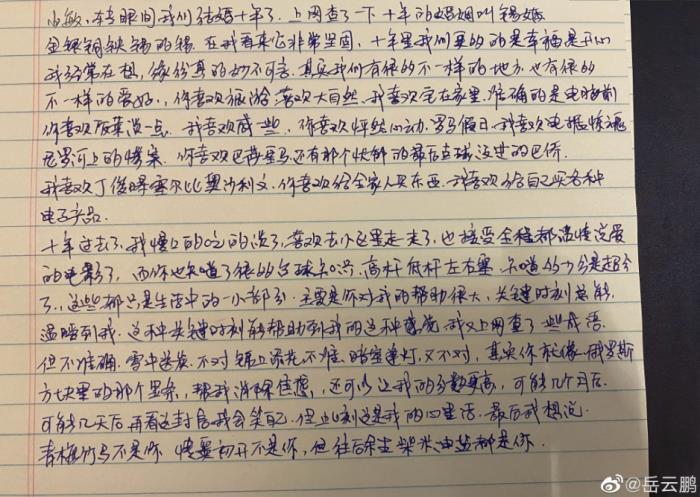 小敏，本季眼间我们结婚十年了，上网查了一下十年的婚姻叫锡婚
金银铜铁锡的锡，在我看来它非常坚固，十年里我们更多的是幸福是开心
我经常在想，缘份真的妙不可言，其实我们有很多不一样的地方，也有很多
不一样的爱好，你喜欢旅游喜欢大自然，我喜欢宅在家里，准确的是电脑前
你喜欢饭菜淡一点，我喜欢咸一些，你喜欢怦然心动，罗马假日，我喜欢电锯惊魂
尼罗河上的惨案，你喜欢巴萨皇马还有那个快射的最后点球没进的巴乔
我喜欢丁俊晖塞尔比奥沙利文，你喜欢给全家人买东西，我喜欢给自己买各种
电子产品，
十年过去了，我慢慢的吃的淡了，喜欢去小区里走一走了，也接受全程都谈情说爱
的电影了，而你也知道了很多台球知识，高杆低杆左右塞，知道147分是超分
了，这些都只是生活中的一小部分，主要是你对我的帮助很大，关键时刻总能
温暖到我，这种关键时刻能帮助到我的这种感觉，我又上网查了些成语，
但不准确，雪中送炭，不对，锦上添花，不准，暗室逢灯，又不对，其实你就像俄罗斯
方块里的那个竖条，帮我消除焦虑，还可以让我的分数更高，可能几个月后，
可能几天后再看这封信我会笑自己，但此刻这是我的心里话，最后我想说，
青梅竹马不是你，情窦初开不是你，但往后余生柴米油盐都是你，
@岳云鹏